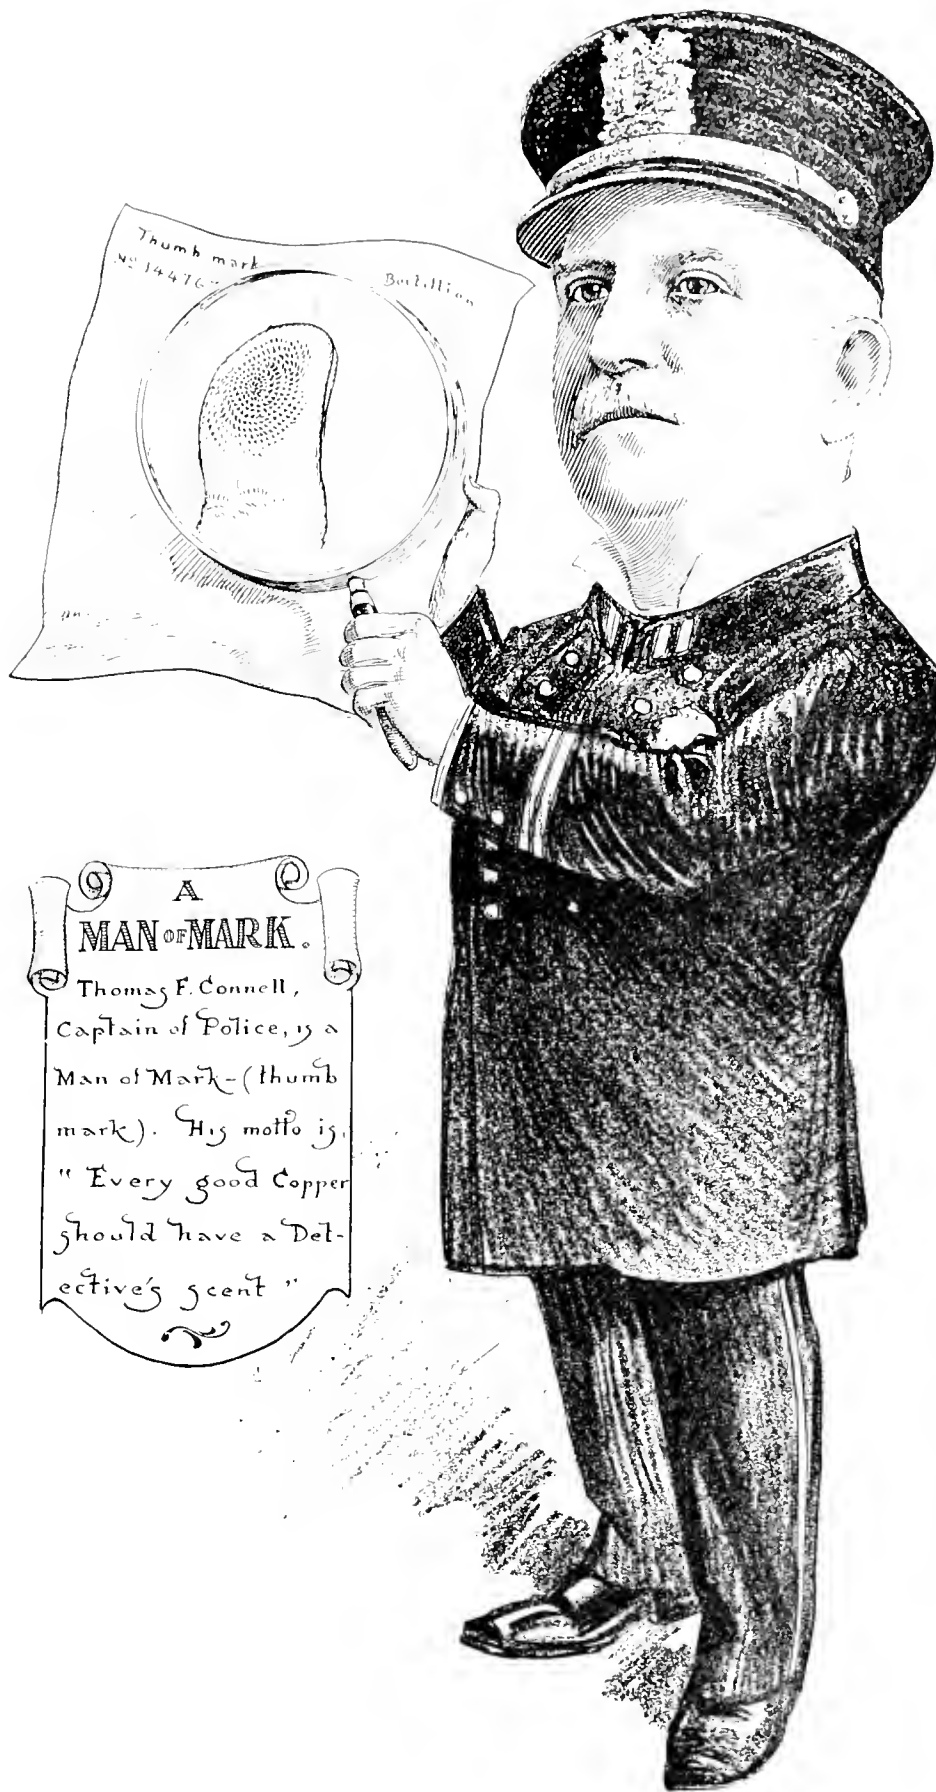 Thumb mark
Bertillion
A
MAN OF MARK.
Thomas F. Connell,
Captain of Police, is a
Man of Mark-(thumb
mark). His motto is,
" Every good Copper
should have a Det-
ective's scent "